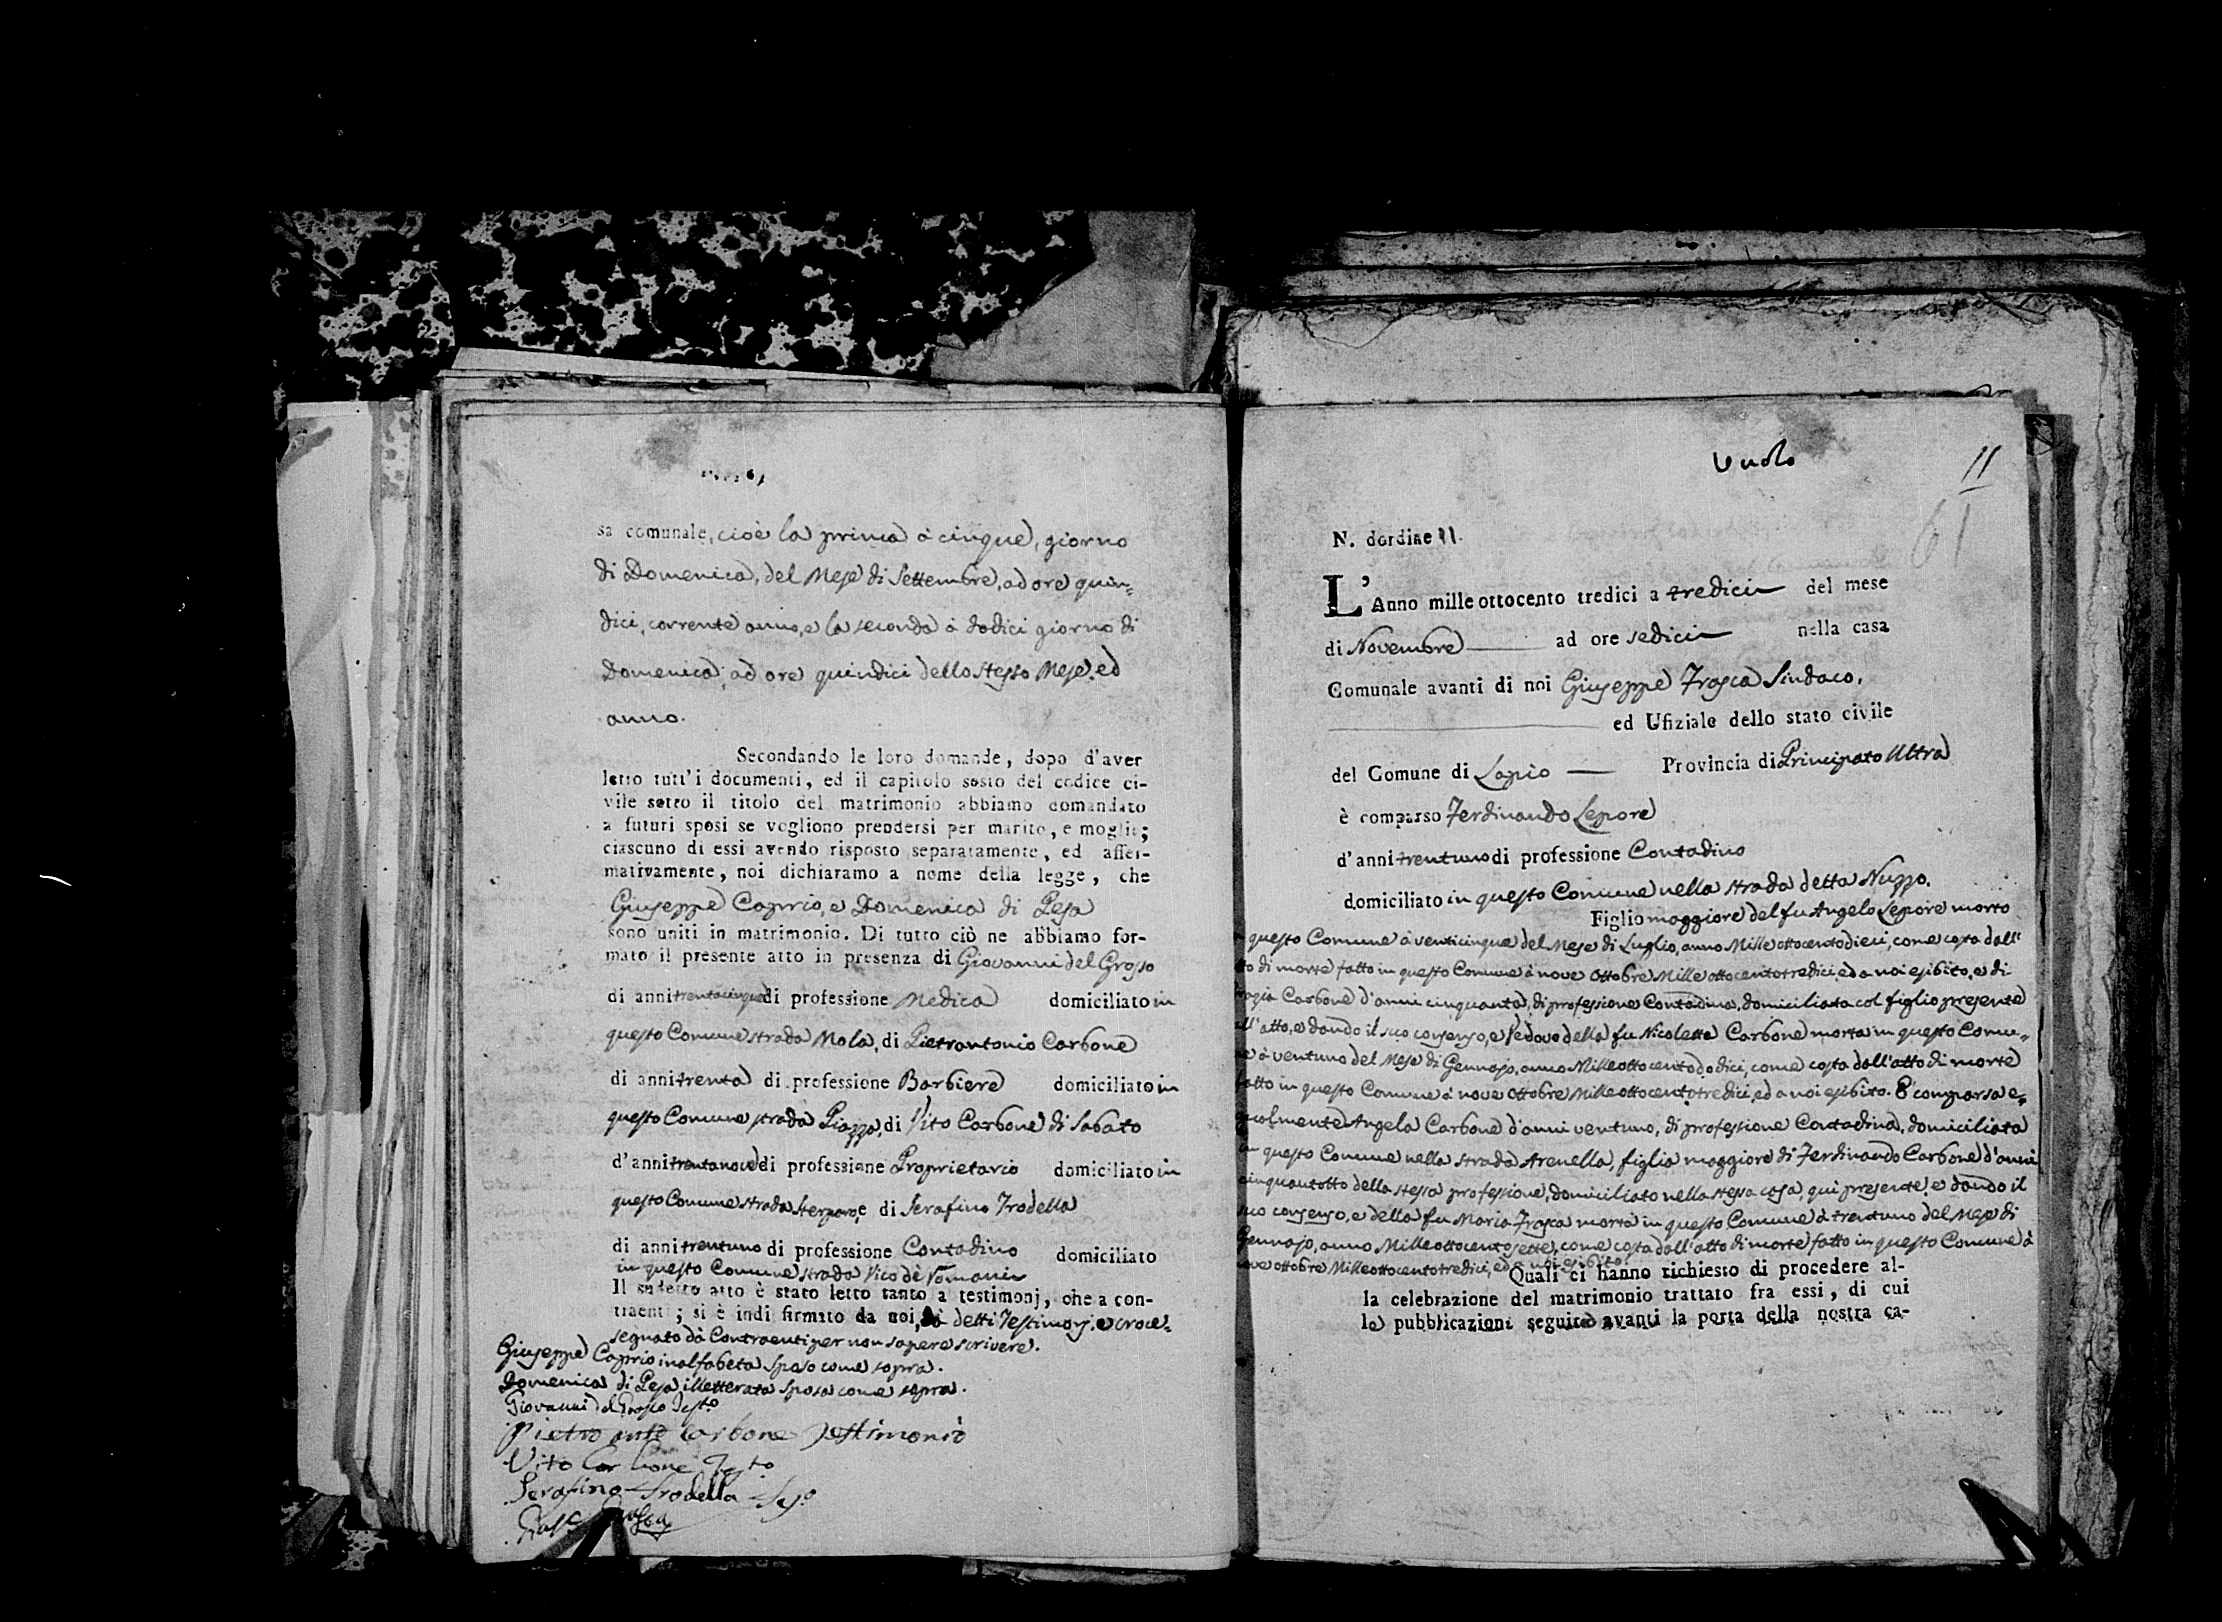 sa comunale, cioè la prima à cinque, giorno
di Domenica, del Mese di Settembre, ad ore quin=
dici, corrente anno, e la seconda à dodici giorno di
Domenica, ad ore quindici dello stesso Mese, ed
anno.
Secondando le loro domande, dopo d'aver
letto tutt'i documenti, ed il capitolo sesto del codice ci-
vile sotto il titolo del matrimonio abbiamo domandato
a futuri sposi se vogliono prendersi per marito, e moglie;
ciascuno di essi avendo risposto separatamente, ed affer-
mativamente, noi dichiaramo a nome della legge, che
Giuseppe Caprio, e Domenica di Pesa
sono uniti in matrimonio. Di tutto ciò ne abbiamo for-
mato il presente atto in presenza di Giovanni del Grosso
di anni trentacinque di professione Medica domiciliato in
questo Comune strada Mola, di Pietrantonio Carbone
di anni trenta di professione Barbiere domiciliato in
questo Comune strada Piazza, di Vito Carbone di Sabato
d'anni trentanove di professione Proprietario domiciliato in
questo Comune strada e di Serafino Trodella
di anni trentuno di professione Contadino domiciliato
in questo Comune strada Vico dè
Il sudetto atto è stato letto tanto a testimonj, che a con-
traenti; si è indi firmato da noi, detti Testimonj, e croce=
segnato dà Contraenti per non sapere scrivere.
Giuseppe Caprio inalfabeta sposo come sopra.
Domenica di Pesa illetterata sposa come sopra.
Giovanni del Grosso Testo
Pietro anto Carbone Testimonio
Vito Carbone Testo
Serafino Trodella
Trosca
Vuolo
11
61
N. dordine 11.
L'Anno mille ottocento tredici a tredici del mese
di Novembre ad ore sedici nella casa
Comunale avanti di noi Giuseppe Trosca Sindaco,
ed Ufiziale dello stato civile
del Comune di Lapio Provincia di Principato Ultra
è comparso Ferdinando Lepore
d'anni trentuno di professione Contadino
domiciliato in questo Comune nella strada detta Nuzzo.
Figlio maggiore del fu Angelo Lepore morto
questo Comune à venticinque del Mese di Luglio, anno Mille ottocentodieci, come costa dall'
to di morte fatto in questo Comune à nove Ottobre Mille ottocentotredici, ed a noi esibito, e di
Carbone d'anni cinquanta, di professione Contadina, domiciliata col figlio presente
all'atto, e dando il suo consenso, e Vedovo della fu Nicoletta Carbone morta in questo Comu=
ne à ventuno del Mese di Gennajo, anno Mille ottocentododici, come costa dall'atto di morte
fatto in questo Comune à nove Ottobre Mille ottocentotredici, ed a noi esibito. E' comparsa e=
gualmente Angela Carbone d'anni ventuno, di professione Contadina, domiciliata
in questo Comune nella strada Arenella, figlia maggiore di Ferdinando Carbone d'anni
cinquantotto della stessa professione, domiciliato nella stessa casa, qui presente, e dando il
suo consenso, e della fu Maria Trosca morta in questo Comune à trentuno del Mese di
Gennajo, anno Mille ottocentosette, come costa dall'atto di morte fatto in questo Comune à
nove ottobre Mille ottocentotredici, ed a noi esibito.
Quali ci hanno richiesto di procedere al-
la celebrazione del matrimonio trattato fra essi, di cui
le pubblicazioni seguite avanti la porta della nostra ca-